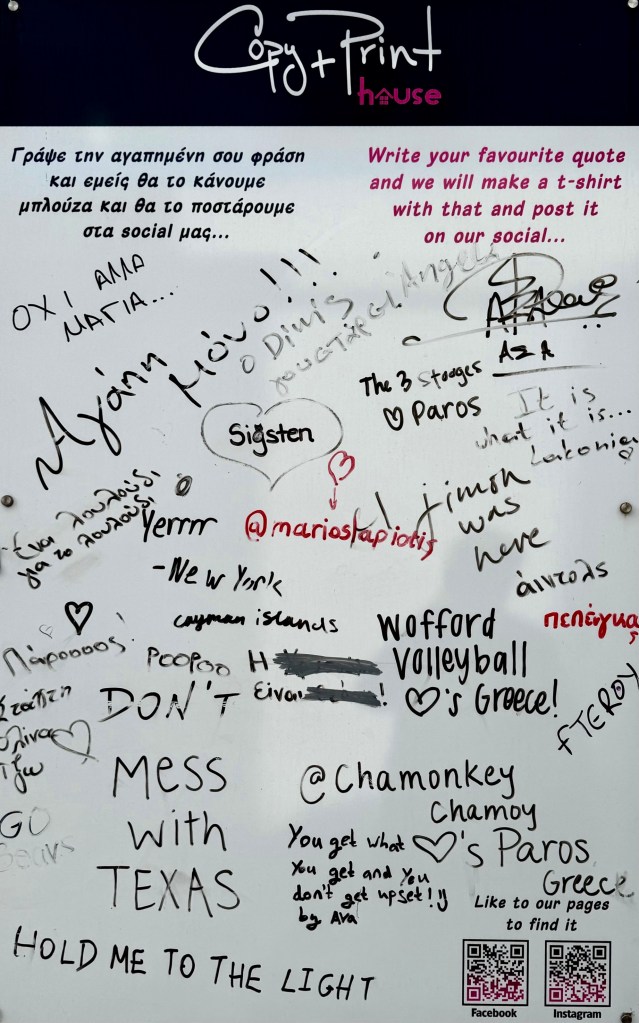 Copy + Print
house
Γράψε την αγαπημένη σου φράση
και εμείς θα το κάνουμε
μπλούζα και θα το ποστάρουμε
στα social μας...
Write your favourite quote
and we will make a t-shirt
with that and post it
on our social...
ΟΧΙ ΑΛΛΑ
ΜΑΓΙΑ....
Αγάπη μόνο!!!
Ο Dinis
γουστάρει Angela
ΑΣΑ
The 3 Stooges
♡ Paros
It is
what it is...
Lakonia
Sigsten
Ένα λουλούδι
για το λουλούδι
Yerrrr
-New York
@mariostapiotis
jimon
was
here
άιντολς
cayman islands
Wofford
Volleyball
♡'s Greece!
πεπέγκας
Πάροοοος!
POOPOO
Η
Είναι !
FTEROY
DON'T
Mess
with
TEXAS
GO
Bears
@Chamonkey
Chamoy
♡'s Paros
Greece
You get what
You get and You
don't get upset!!
by Ava
HOLD ME TO THE LIGHT
Like to our pages
to find it
Facebook
Instagram